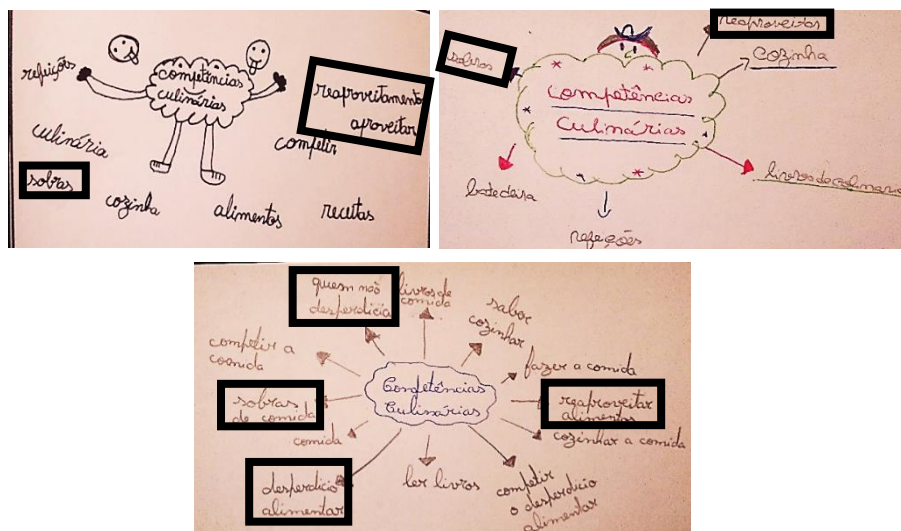 refeições
competências
culinárias
reaproveitamento
aproveitar
culinária
competir
sobras
cozinha
alimentos
receitas
reaproveitos
sobras
cozinha
Competências
Culinárias
batedeira
livros de culinaria
refeições
quem não
desperdicia
livros de
comida
sabor
cozinhar
competir a
comida
fazer a comida
Competências
Culinárias
sobras
de comida
reaproveitar
alimentos
comida
cozinhar a comida
desperdicio
alimentar
ler livros
competir
o desperdicio
alimentar